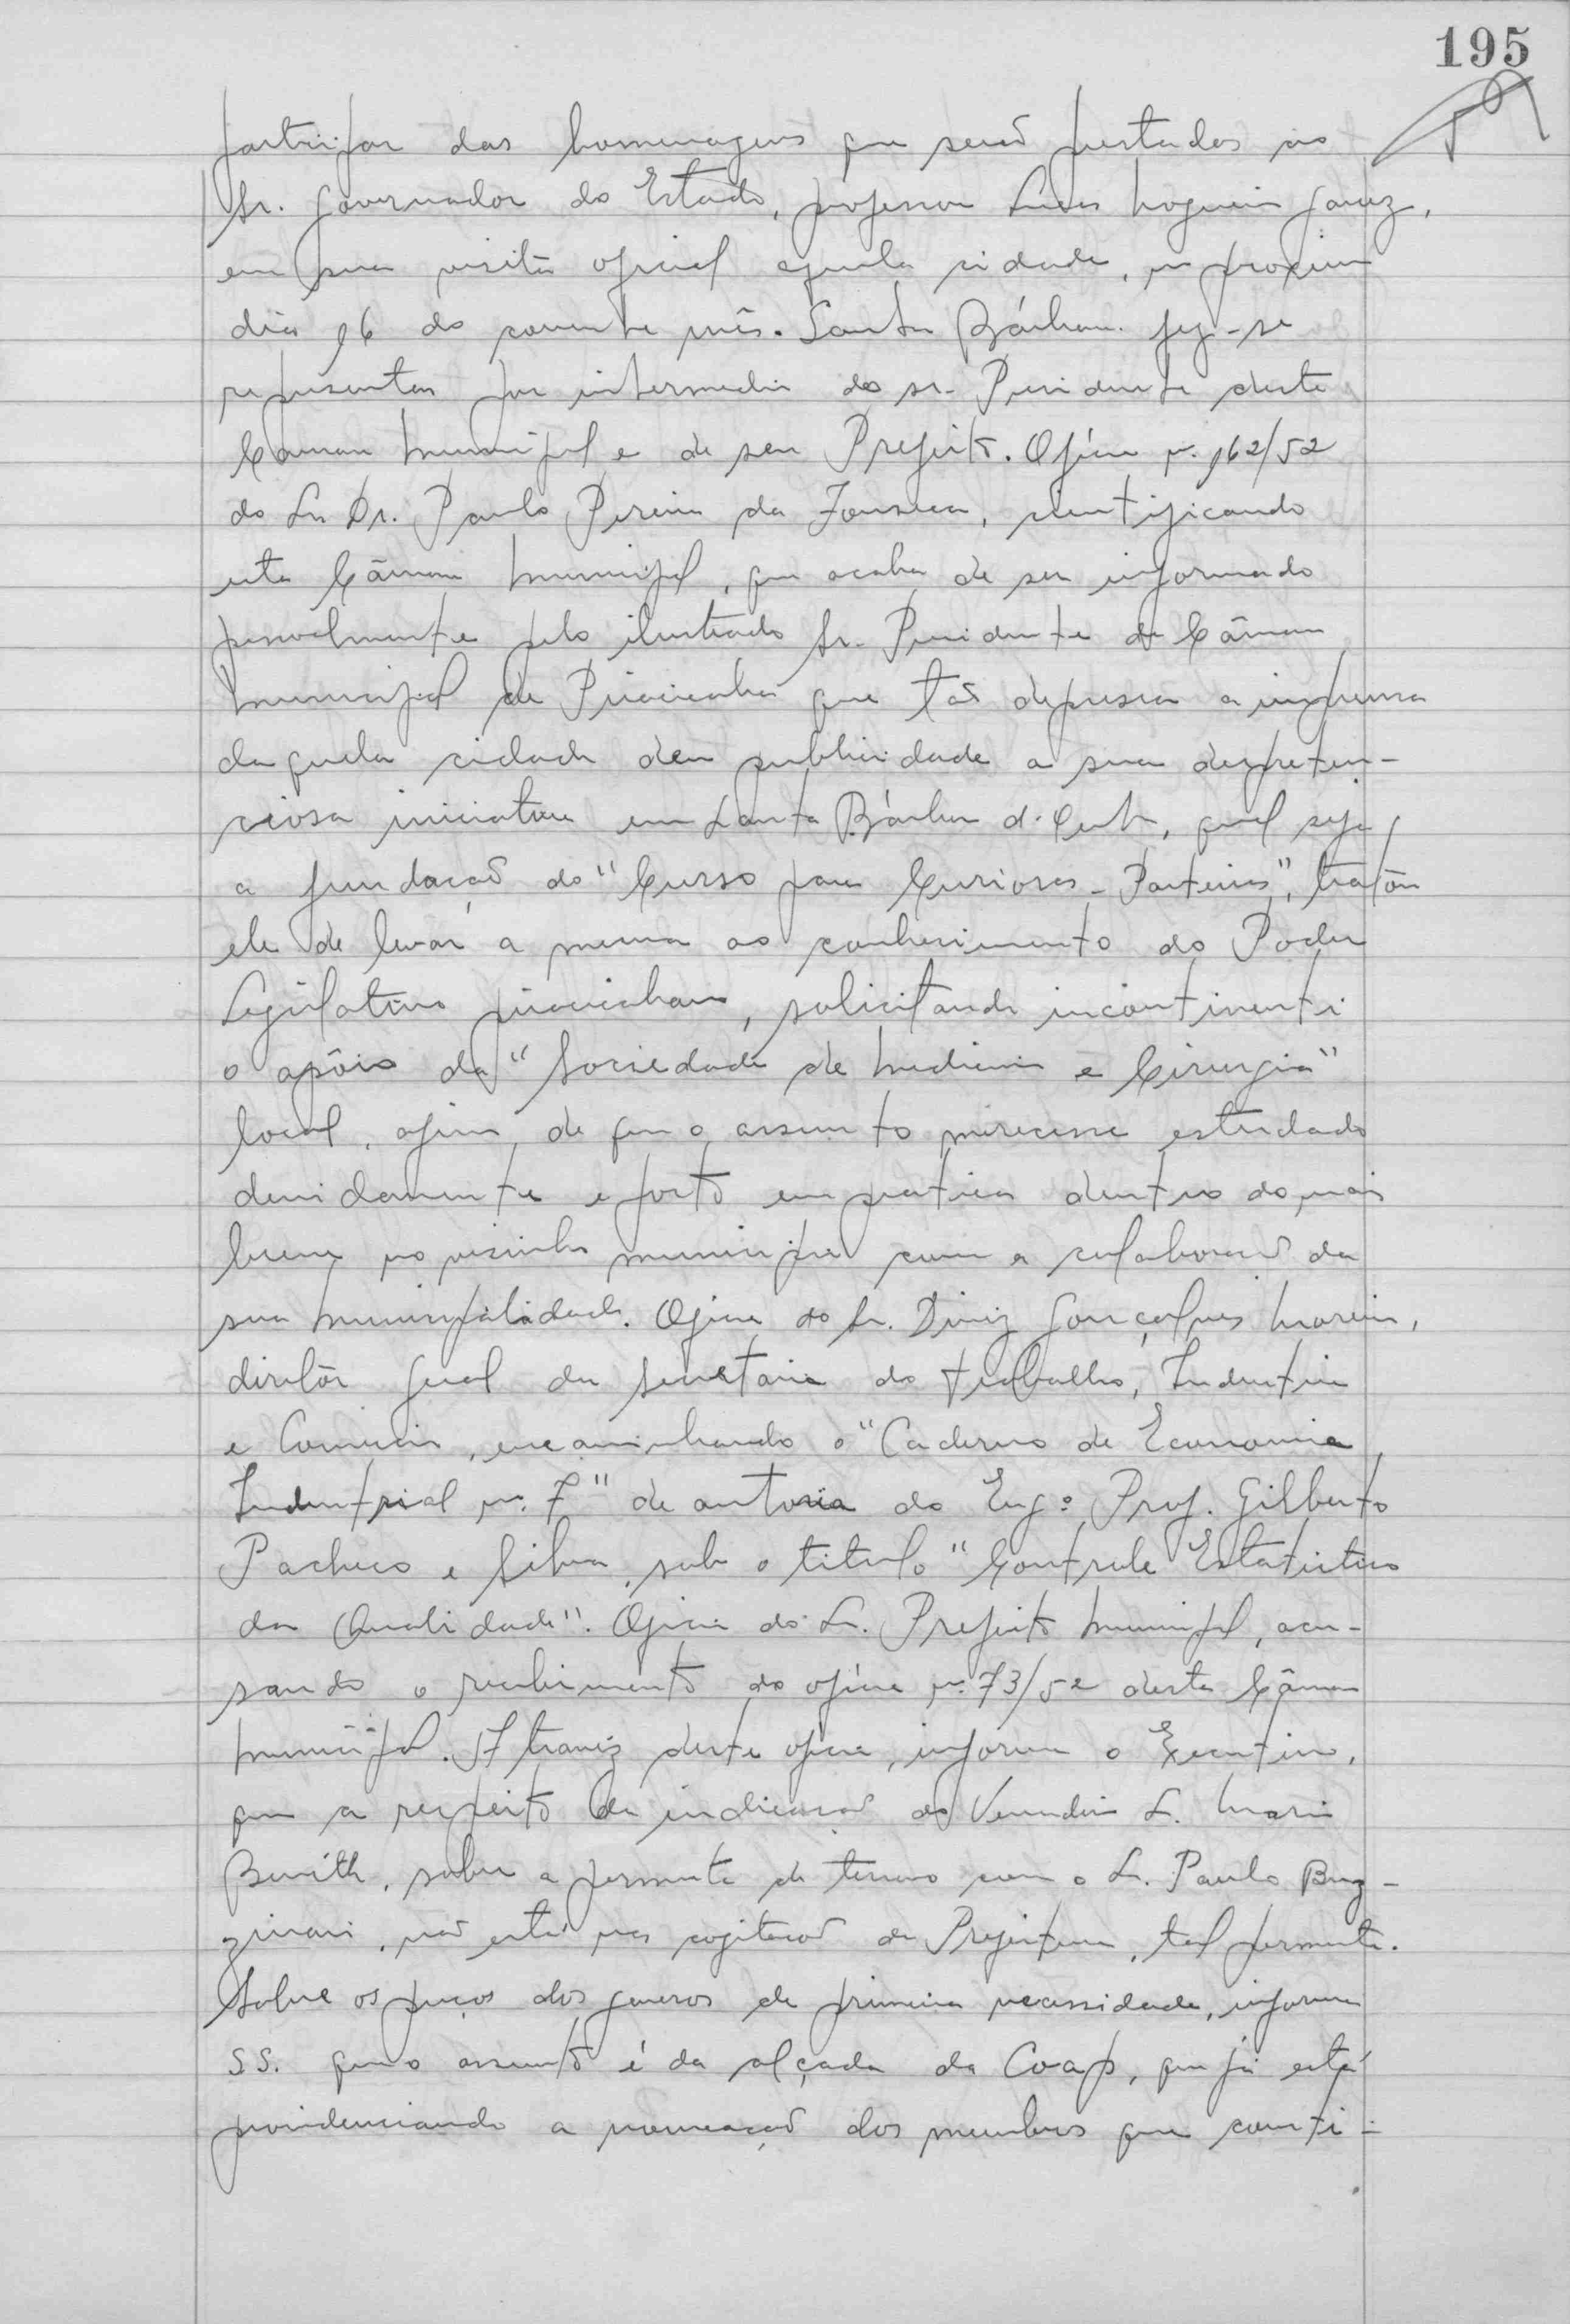 195
participar das homenagens que serão prestadas ao
Sr. Governador do Estado, professor Lucas Nogueira Garcez,
em sua visita oficial aquela cidade, no proximo
dia 16 do corrente mês. Santa Bárbara fez-se
representar por intermedio do sr. Presidente desta
Camara Municipal e de seu Prefeito. Ofício nº. 162/52
do Sr. Dr. Paulo Pereira da Fonseca, cientificando
esta Câmara Municipal, que acaba de ser informado
pessoalmente pelo ilustrado Sr. Presidente da Câmara
Municipal de Piracicaba que tão depressa a imprensa
daquela cidade deu publicidade a sua despreten-
ciosa iniciativa em Santa Bárbara d'Oeste, qual seja
a fundação do "Curso para Curiosas-Parteiras", tratou
ele de levar a mesma ao conhecimento do Poder
Legislativo piracicabano, solicitando incontinenti
o apôio da "Sociedade de Medicina e Cirurgia"
local, afim de que o assunto merecesse estudado
devidamente e posto em pratica dentro do mais
breve no visinho municipio com a colaboração da
sua Municipalidade. Oficio do Sr. Diniz Gonçalves Moreira,
diretôr geral da Secretaria do Trabalho, Industria
e Comercio, encaminhando o "Caderno de Economia
Industrial nº. 7" de autoria do Engº Prof. Gilberto
Pacheco e Silva, sob o titulo "Controle Estatistico
da Qualidade". Oficio do Sr. Prefeito Municipal, acu-
sando o recebimento do ofício nº. 73/52 desta Câmara
Municipal. Atravez deste oficio, informa o Executivo,
que a respeito da indicação do Vereador Sr. Mario
sobre a permuta de terreno com o Sr. Paulo Buz-
zinari, não está nas cogitação da Prefeitura, tal permuta.
Sobre os preços dos generos de primeira necessidade, informa
SS. que o assunto é da alçada da Coap, que já está
providenciando a nomeação dos membros que consti-